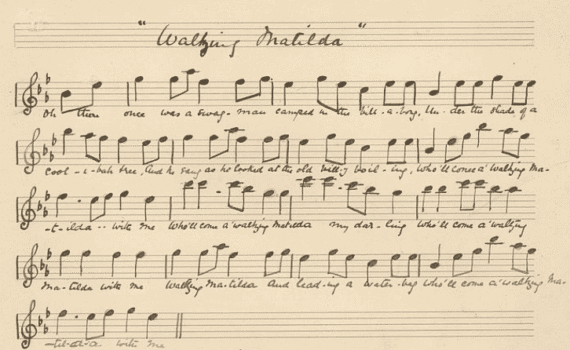 "Waltzing Matilda"
Oh there once was a swag-man camped in the bill-a-bong, Un-der the shade of a
Cool-i-bah tree, And he sang as he looked at the old bill-y boil-ing, Who'll come a' waltzing Ma-
-t-ilda -- with me Who'll come a' waltzing Matilda my dar-ling who'll come a' waltzing
Ma-tilda with me Waltzing Ma-tilda and lead-ing a water-bag who'll come a' waltzing Ma-
with me